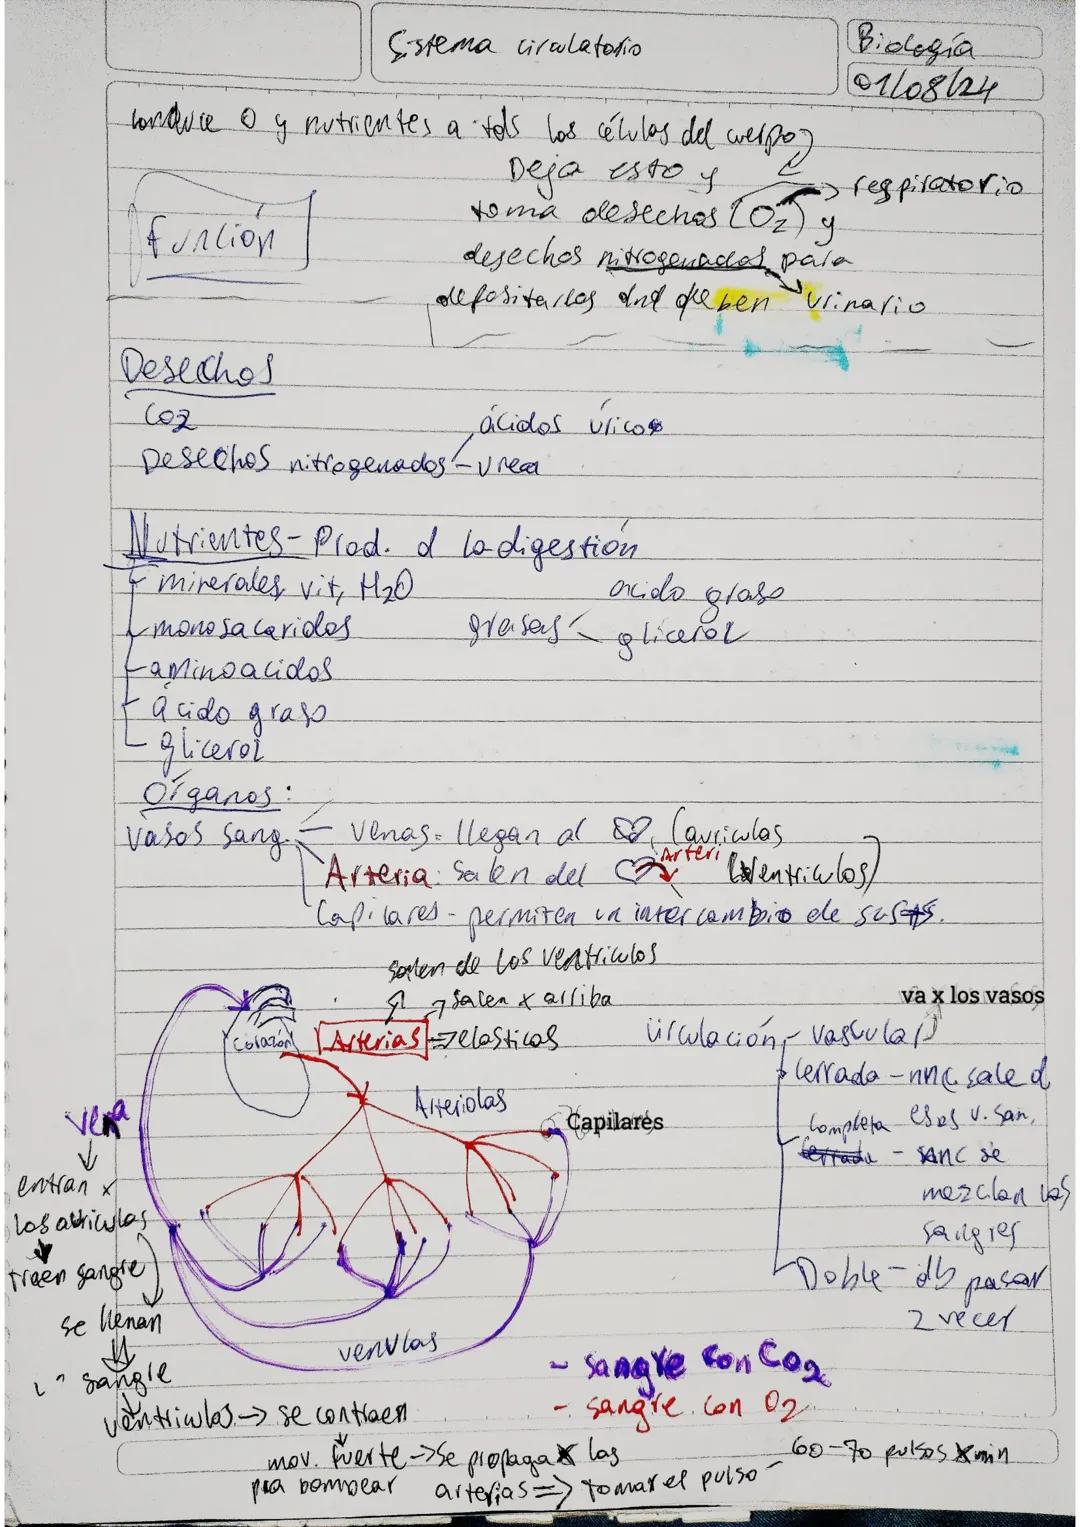 Sistema circulatorio
Biología
01/08/24
conduce O y nutrientes a tds las células del cuerpo
Deja esto y
toma desechos (O₂) y
→ respiratorio
desechos nitrogenados para
depositarlos dnd deben urinario
Función
Desechos
CO2
Desechos nitrogenados - urea
ácidos úricos
Nutrientes - Prod. d la digestión
minerales, vit, H₂O
monosacaridos
aminoacidos
ácido graso
glicerol
grasas
ácido graso
glicerol
Órganos:
vasos sang.
venas = llegan al (auriculas
Arteria: Salen del (ventriculos)
Arteri
Capilares - permiten un intercambio de susts.
salen de los ventriculos
salen x arriba
Arterias => elasticas
Corazón
Arteriolas
Capilares
vena
entran x
las auriculas
traen sangre
se llenan
sangre
venulas
ventriculos → se contraen
mov. fuerte → se propaga x las
pra bombear arterias => tomar el pulso - 60-70 pulsos x min
va x los vasos
Circulación - vascular
Cerrada - nnc sale d
esos v. san.
completa
cerrada - nnc se
mezclan las
sangres
Doble - db pasar
2 veces
- sangre con CO₂
- sangre con O₂